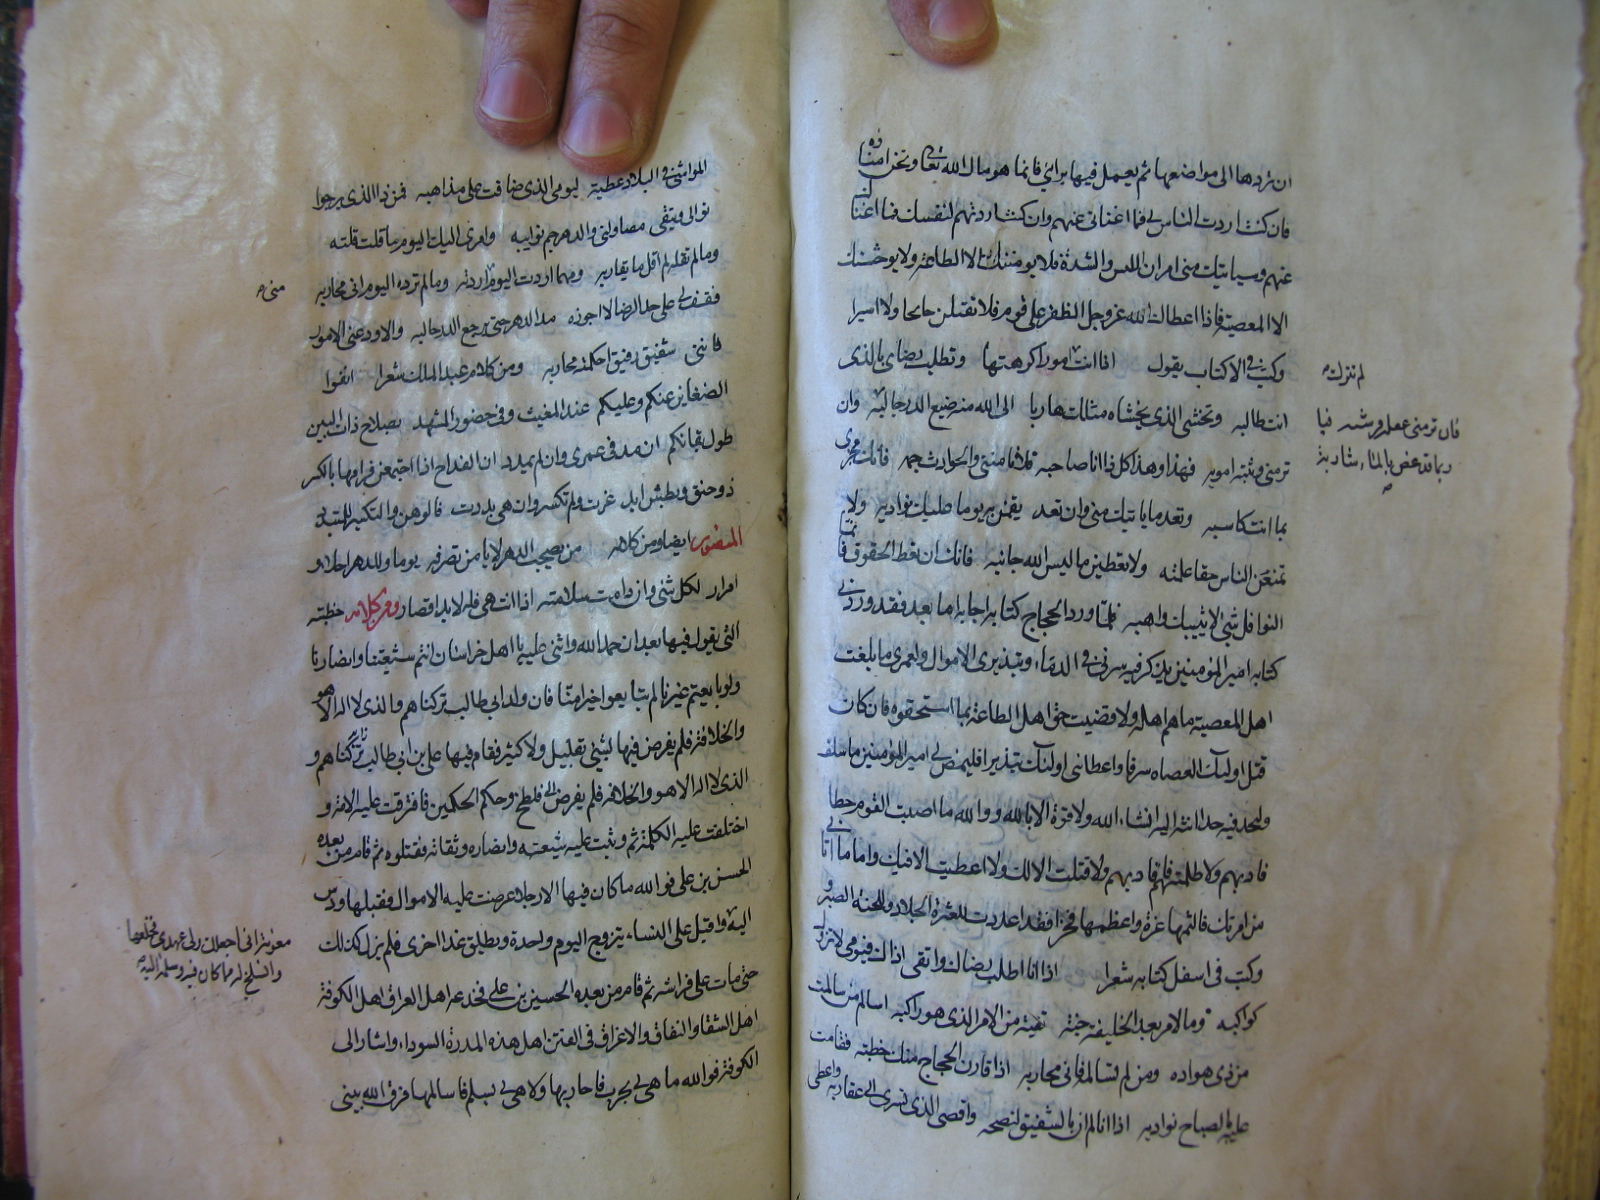 ان تردها الى مواضعها ثم يعمل فيها برائي فانما هو مال الله تعالى ونحن امناؤه
فان كنت اردت الناس لي فما اغنانى عنهم وان كنت اردتهم لنفسك فما اغناك
عنهم وسياتيك منى امران اللين والشدة فلا يومننك الا الطاعة ولا يوحشنك
الا المعصية فاذا اعطاك الله عز وجل الظفر على قوم فلا تقتلن جانحا ولا اسيرا
وكتب في الاكتاب يقول اذا انت امورا كرهتها وتطلب رضاى بالذى
لم تترك
انت طالبه وتخشى الذى يخشاه مثلك هاربا الى الله منه ضيع الدر جالبه وان
فان ترمنى غفلة قرشية فيا
ربما قد غص بالماء شاربه
ترمنى وثبة امويه فهذا وهذا كل ذا انا صاحبه فلا تامننى والحوادث جمه فانك مجزى
بما انت كاسبه وتعد ما ياتيك منى وان تعد يقمن به يوما عليك نوادبه ولا
تمنعن الناس حقا علمته ولا تعطين ما ليس لله جانبه فانك ان تعط الحقوق فانما
النوافل شي لا يثيبك واهبه فلما ورد الحجاج كتابه اجابه اما بعد فقد ورد لي
كتاب امير المؤمنين يذكر فيه سرفى في الدماء وتبذيرى الاموال ولعمرى ما بلغت
اهل المعصية ما هم اهله ولا قضيت حق اهل الطاعة بما استحقوه فان كان
قتلى اولئك العصاه سرفا واعطائى اولئك تبذيرا فليمض لي امير المؤمنين ما سلف
وليحد فيه حدا انته اليه انشاء الله ولا قوة الا بالله ووالله ما اصبت القوم خطا
فاديهم ولا ظلمتهم فاقاد بهم ولا قتلت الا لك ولا اعطيت الا فيك واما ما اتانى
من امريك فالينهما عزة واعظمهما فخرا فقد اعددت للعزة الجلاد وللمحنة الصبر و
وكتب فى اسفل كتابه شعرا اذا انا اطلب رضاك واتقى اذاك فيومى لا تزول
كواكبه وما لامر بعد الخليفة جنة تقيه من الامر الذى هو راكبه اسالم من سالمت
من ذى هواده ومن لم تسالمه فانى محاربه اذا قارن الحجاج منك خطبته فقامت
عليه بالصباح نوادبه اذا انا لم ادن بالشفيق لنصحه واقصى الذى تسرى الى عقاربه واعطى
المواشى فى البلاد عطية ليومى الذى ضاقت على مذاهبه فمن ذا الذى يرجوا
نوالى ويتقى مصاولتى والدهر جم نوايبه وامرى اليك اليوم ما قلت قلته
وما لم تقله لم اقل ما يقاربه ومهما اردت اليوم اردته وما لم ترده اليوم انى مجانبه
منى
فقف لي على حد الرضا لا اجوزه مدا الدهر حتى يرجع الدر حالبه والا ودعنى الامور
فاننى شفيق رفيق احكمته تجاربه ومن كلام عبد الملك شعرا انفوا
الضغاين عنكم وعليكم عند المغيب وفى حضور المشهد بصلاح ذات البين
طول بقائكم ان مد فى عمرى وان لم يمدد ان القداح اذا اجتمعن فرامها بالكسر
ذو حنق وبطش ايد عزت ولم تكسر وان هى بددت فالوهن والتكسير للمتبدد
المنصور ايضا ومن كلامه من يصحب الدهر لا يامن تصرفه يوما وللدهر احلاء و
امرار لكل شئ وان دامت سلامته اذا انتهى فله لا بد اقصار ومن كلامه خطبته
التى يقول فيها بعد ان حمد الله واثنى عليه يا اهل خراسان انتم شيعتنا وانصارنا
ولو بايعتم غيرنا لم تبايعوا خيرا منا فان ولد ابى طالب تركناهم والذى لا اله الا هو
والخلافة فلم يفرض فيها لشئ تقليل ولا كثير فقام فيها على بن ابى طالب تركناهم و
الذى لا اله الا هو والخلافة فلم يفرض فلطخ وحكم الحكمين فافترقت عليه الامة و
اختلفت عليه الكلمة ثم وثبت عليه شيعته وانصاره وثقاته فقتلوه ثم قام من بعده
الحسن بن على فو الله ما كان فيها الا رجلا عرضت عليه الاموال فقبلها ودس
معوية انى اجعلك ولى عهدى فخلعها
وانسلخ له مما كان فيه وسلمه اليه
اليه واقبل على النساء يتزوج اليوم واحدة ويطلق غدا اخرى فلم يزل كذلك
حتى مات على فراشه ثم قام من بعده الحسين بن على فخدعه اهل العراق اهل الكوفة
اهل الشقاق والنفاق والاغراق فى الفتن اهل هذه المدرة السوداء واشار الى
الكوفة فو الله ما هى لي بحرب فاحاربها ولا هى لي بسلم فاسالمها فرق الله بينى